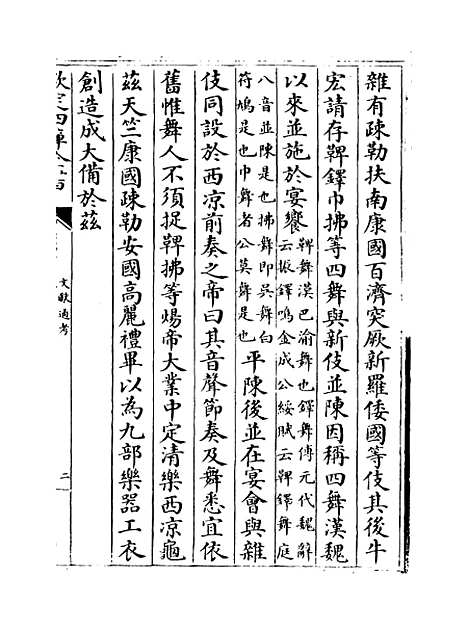 雜有疎勒扶南康國百濟突厥新羅倭國等伎其後牛
宏請存鞞鐸巾拂等四舞與新伎並陳因稱四舞漢魏
以來並施於宴饗
鞞舞漢巴渝舞也鐸舞傅元代魏辭
云振鐸鳴金成公綏賦云鞞鐸舞庭
八音並陳是也拂舞即吳舞白
符鳩是也巾舞者公莫舞是也
平陳後並在宴會與雜
伎同設於西凉前奏之帝曰其音聲節奏及舞悉宜依
舊惟舞人不須捉鞞拂等煬帝大業中定清樂西凉龜
茲天竺康國疎勒安國高麗禮畢以為九部樂器工衣
創造成大備於茲
欽定四庫全書
文獻通考
二